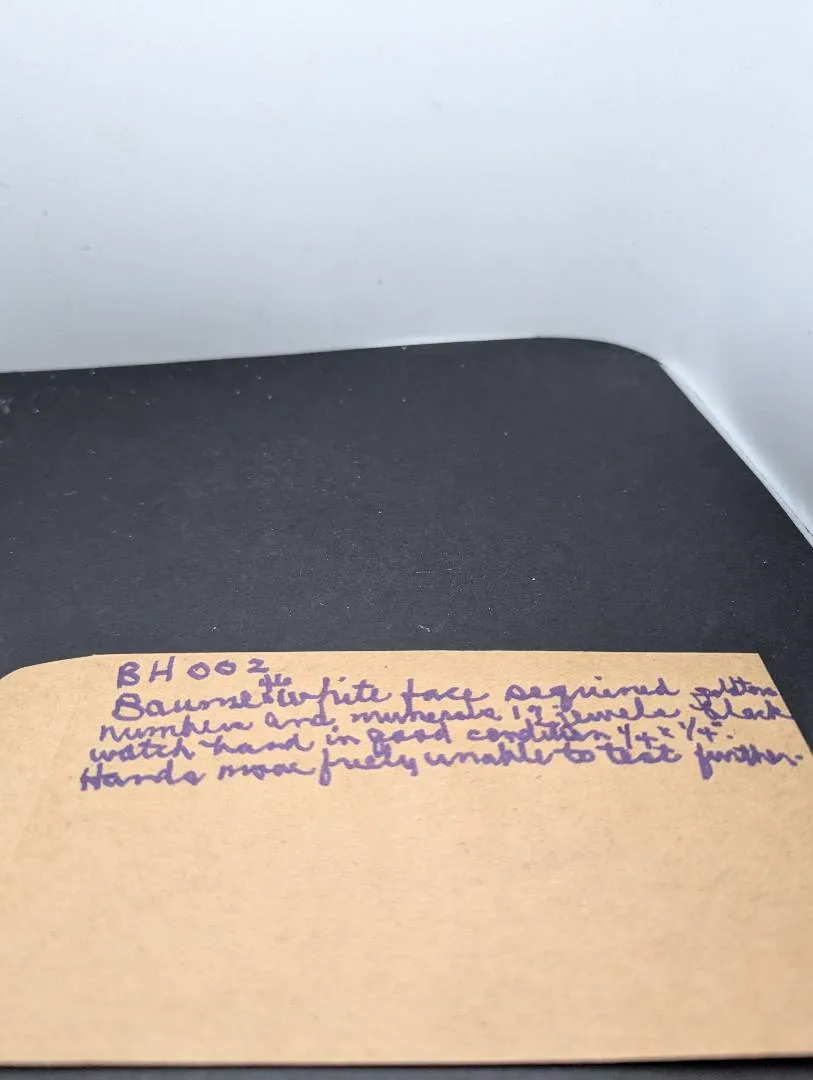 BH 002
Baume #6 white face sequined goldtone
numbers and numerals 17 jewels black
watch hand in good condition 1/4 x 1/4".
Hands move freely, unable to test further.